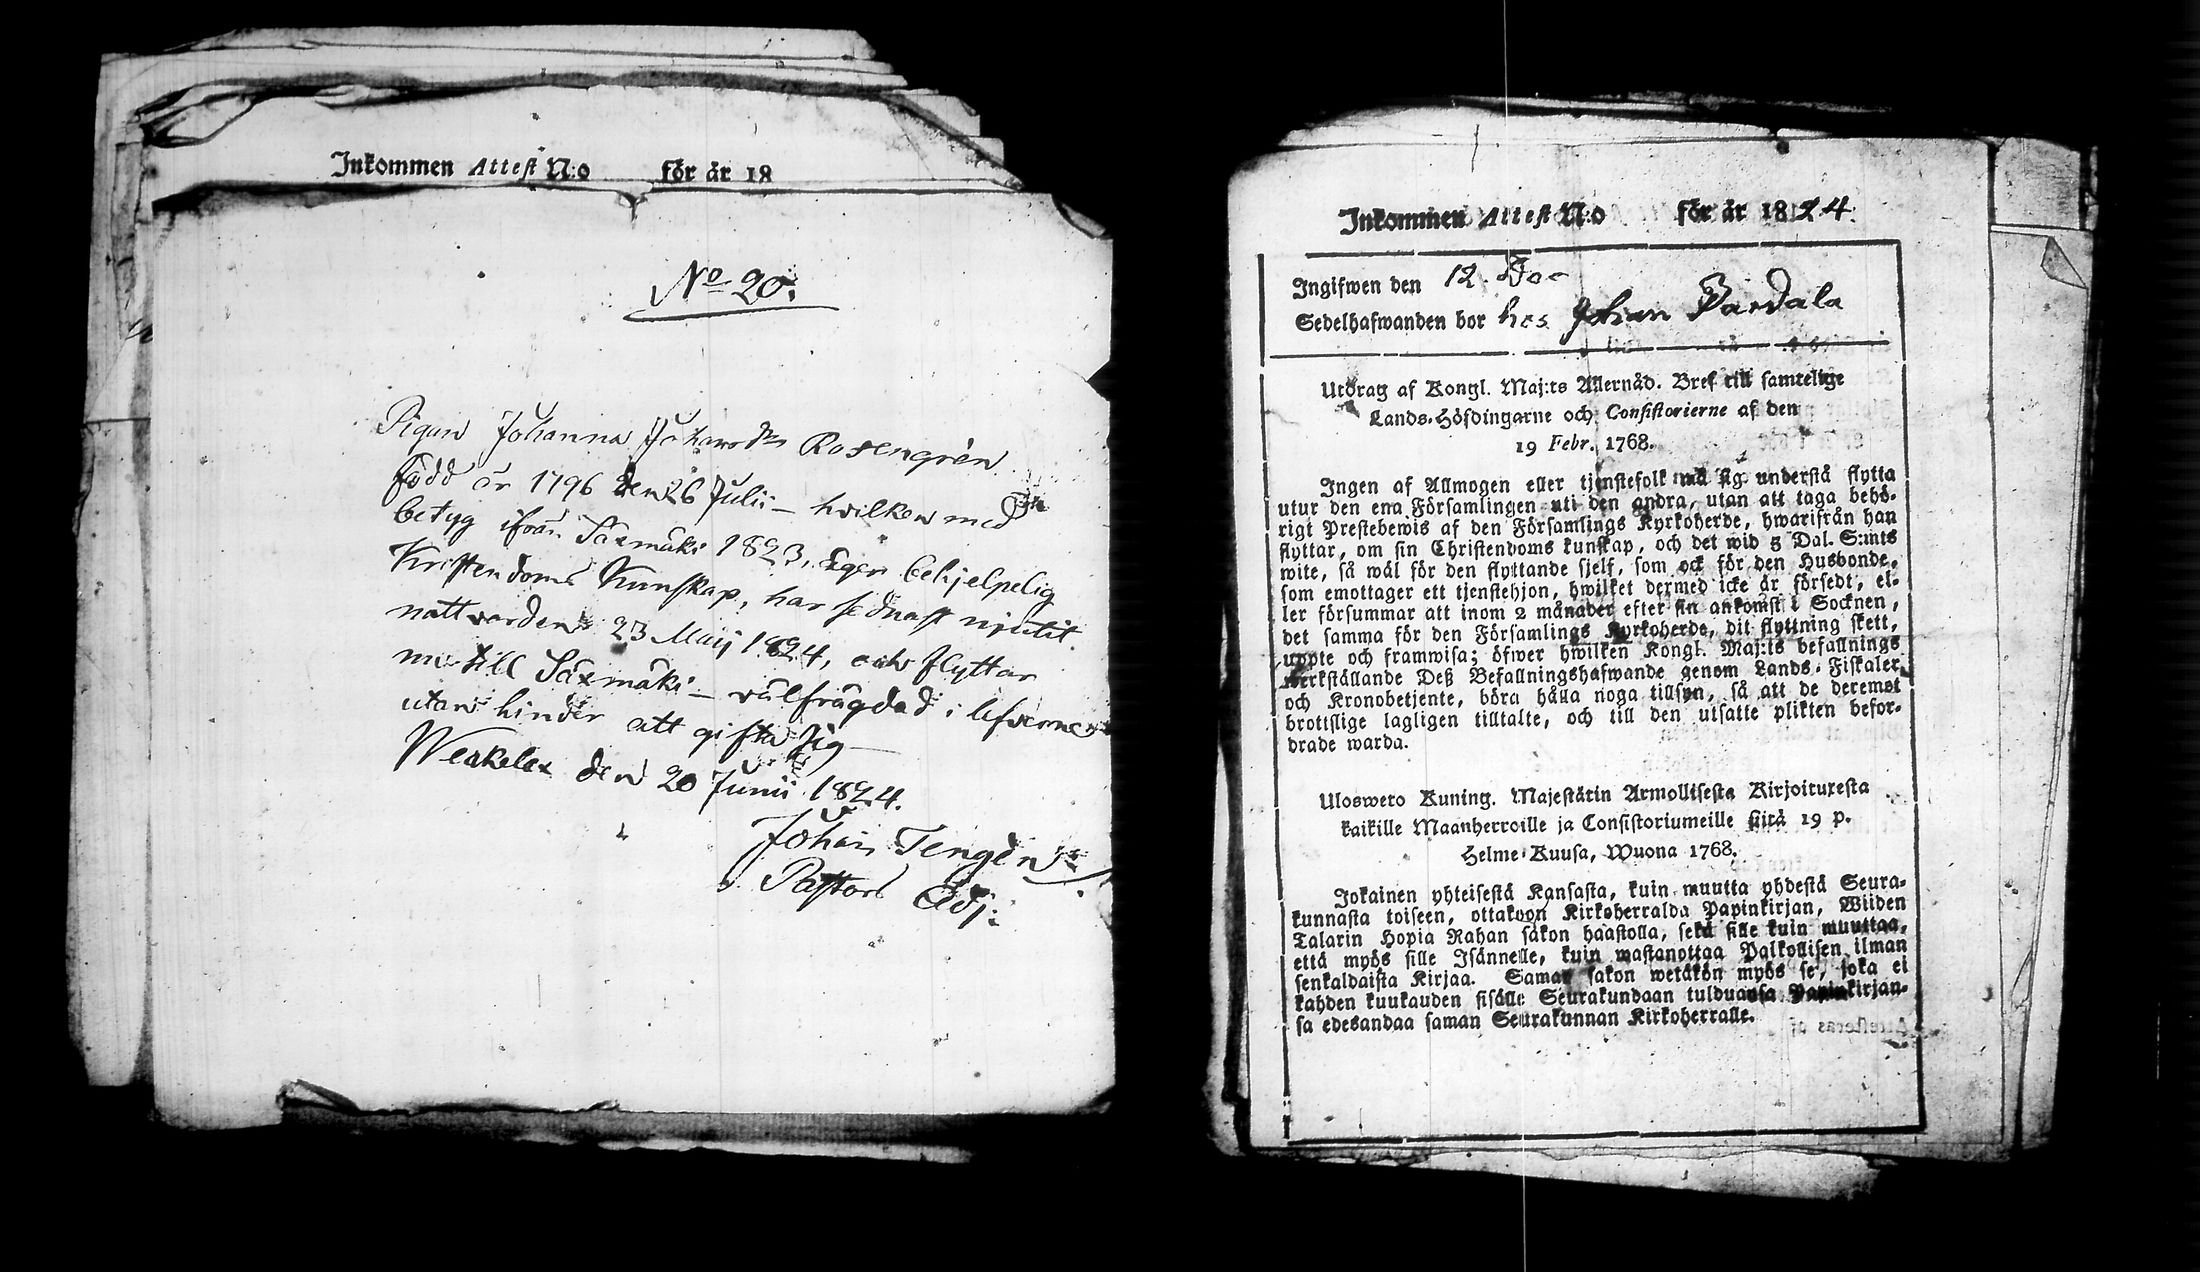 Inkommen Attest N:o för år 18
No 20.
Pigan Johanna Johansdr Rosengrèn
född år 1796 den 26 Julii – hvilken med
betyg ifrån Säxmäki 1823, äger behjelpelig
Kristendoms Kunskap, har sednast njutit
nattvarden 23 Maij 1824, och flyttar
nu till Säxmäki – välfrägdad i lefverne
utan hinder att gifta sig –
den 20 Junii 1824.
Johan Tengèn
Pastors Adj:
Inkommen Attest N:o för år 1824.
Ingifwen den 12
Sedelhafwanden bor hos Johan
Utdrag af Kongl. Maj:ts Allernåd. Bref till samtelige
Lands-Höfdingarne och Consistorierne af den
19 Febr. 1768.
Ingen af Allmogen eller tjenstefolk må sig understå flytta
utur den ena Församlingen uti den andra, utan att taga behö-
rigt Prestebewis af den Församlings Kyrkoherde, hwarifrån han
flyttar, om sin Christendoms kunskap, och det wid 5 Dal. S:mts
wite, så wäl för den flyttande sjelf, som ock för den Husbonde,
som emottager ett tjenstehjon, hwilket dermed icke är försedt, el-
ler försummar att inom 2 månader efter sin ankomst i Socknen,
det samma för den Församlings Kyrkoherde, dit flyttning skett,
uppte och framwisa; öfwer hwilken Kongl. Maj:ts befallnings
werkställande Deß Befallningshafwande genom Lands-Fiskaler
och Kronobetjente, böra hålla noga tillsyn, så att de deremot
brottslige lagligen tilltalte, och till den utsatte plikten befor-
drade warda.
Uloswero Kuning. Majestätin Armollisesta Kirjoituxesta
kaikille Maanherroille ja Consistoriumeille siitä 19 p.
Helme-Kuusa, Wuona 1768.
Jokainen yhteisestä Kansasta, kuin muutta yhdestä Seura-
kunnasta toiseen, ottakoon Kirkoherralda Papinkirjan, Wiiden
Talarin Hopia Rahan sakon haastolla, sekä sille kuin muuttaa,
että myös sille Isännelle, kuin wastanottaa Palkollisen ilman
senkaldaista Kirjaa. Saman sakon wetäkön myös se, joka ei
kahden kuukauden sisälle Seurakundaan tulduansa Papinkirjan-
sa edesandaa saman Seurakunnan Kirkoherralle.